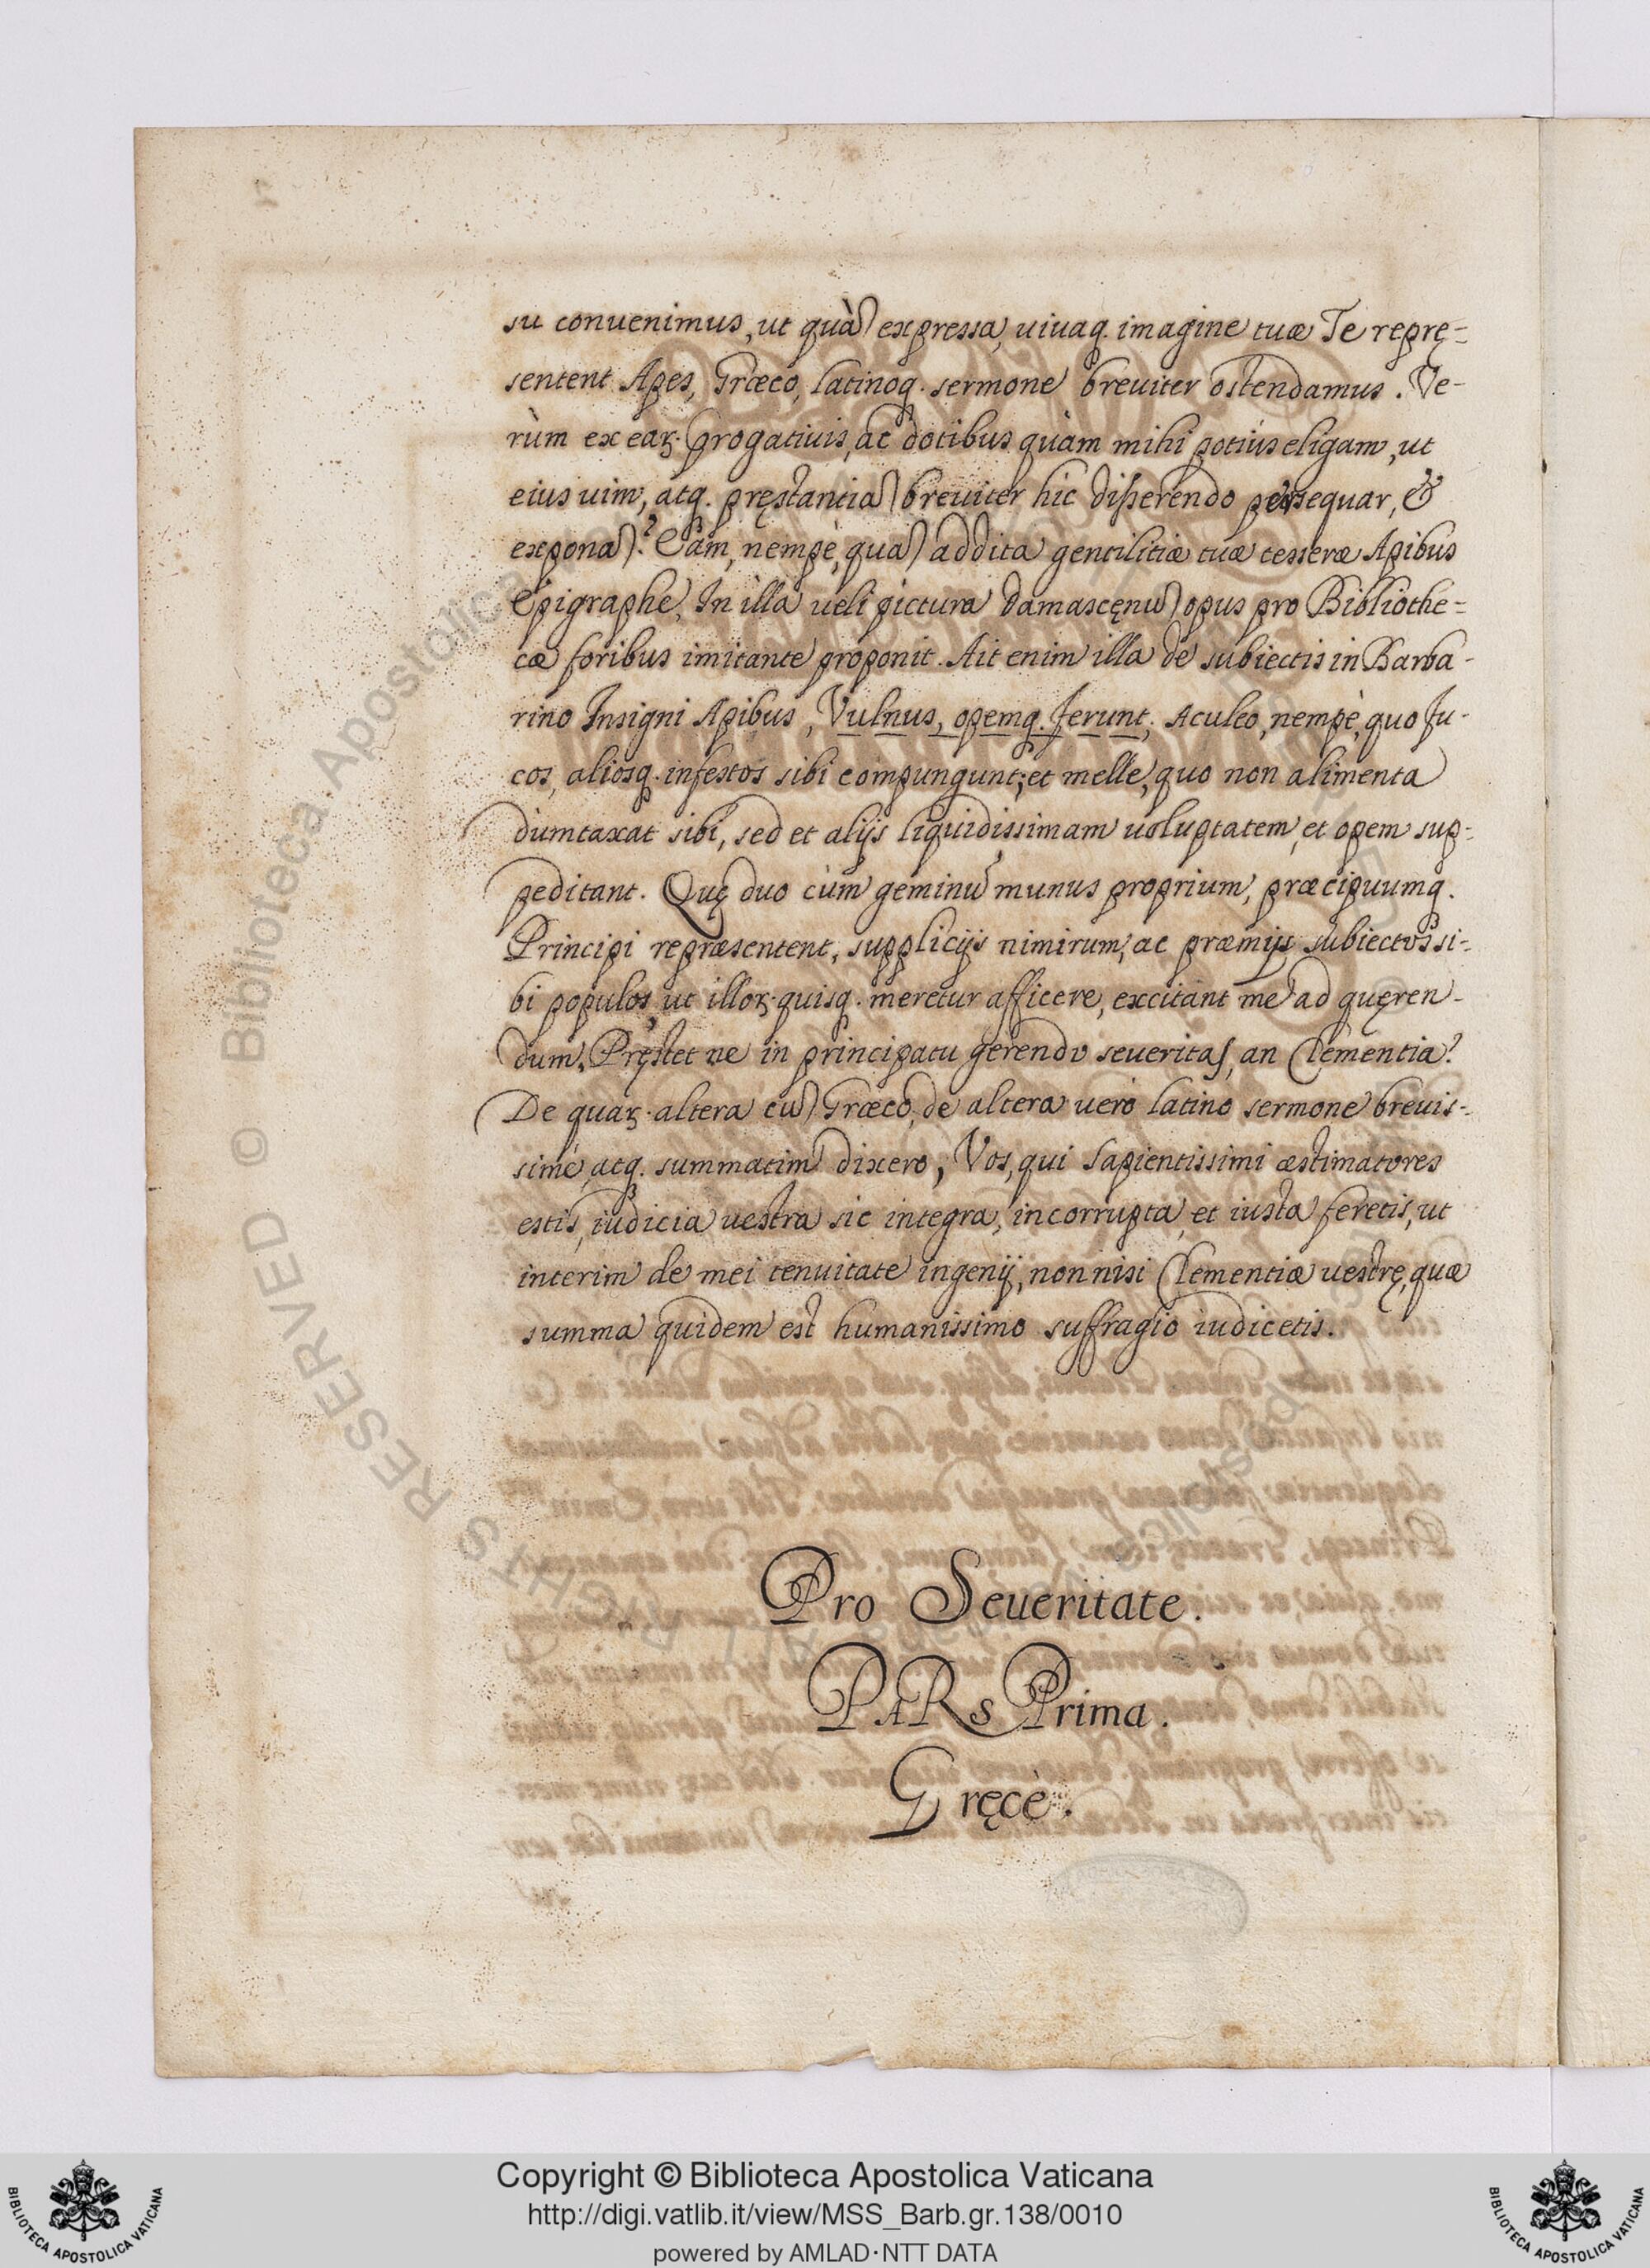 su conuenimus, ut quà expressa, uiuaq. imagine tuæ Te reprę-
sentent Apes, Græco, latinoq. sermone breuiter ostendamus. Ve-
rùm ex eaꝝ. progatiuis, ac dotibus quàm mihi potius eligam, ut
eius uim, atq. pręstantiã breuiter hic disserendo persequar, &
exponã? Eam, nempè, quã addita gentilitiæ tuæ tesseræ Apibus
Epigraphe, In illa ueli pictura damascęnũ opus pro Bibliothe-
cæ foribus imitante proponit. Ait enim illa de subiectis in Barba-
rino Insigni Apibus, Vulnus, opemq. ferunt; Aculeo, nempè, quo fu-
cos, aliosq. infestos sibi compungunt; et melle, quo non alimenta
dumtaxat sibi, sed et alijs liquidissimam uoluptatem, et opem sup-
peditant. Quę duo cùm geminũ munus proprium, præcipuumq.
Principi repræsentent, supplicijs nimirum, ac præmijs subiectos si-
bi populos, ut illoꝝ. quisq. meretur afficere, excitant me ad quęren-
dum, Pręstet ne in principatu gerendo seueritas, an Clementia?
De quaꝝ. altera cũ Græco, de altera uerò latino sermone breuis-
simè, atq. summatim dixero, Vos, qui sapientissimi æstimatores
estis, iudicia uestra sic integra, incorrupta, et iusta feretis, ut
interim de mei tenuitate ingenij, non nisi Clementiæ uestrę, quæ
summa quidem est humanissimo suffragio iudicetis.
Pro Seueritate.
PARs Prima.
Gręcè.
© Biblioteca Apostolica
ALL RIGHTS RESERVED
Copyright © Biblioteca Apostolica Vaticana
http://digi.vatlib.it/view/MSS_Barb.gr.138/0010
powered by AMLAD·NTT DATA
BIBLIOTECA APOSTOLICA VATICANA
BIBLIOTECA APOSTOLICA VATICANA